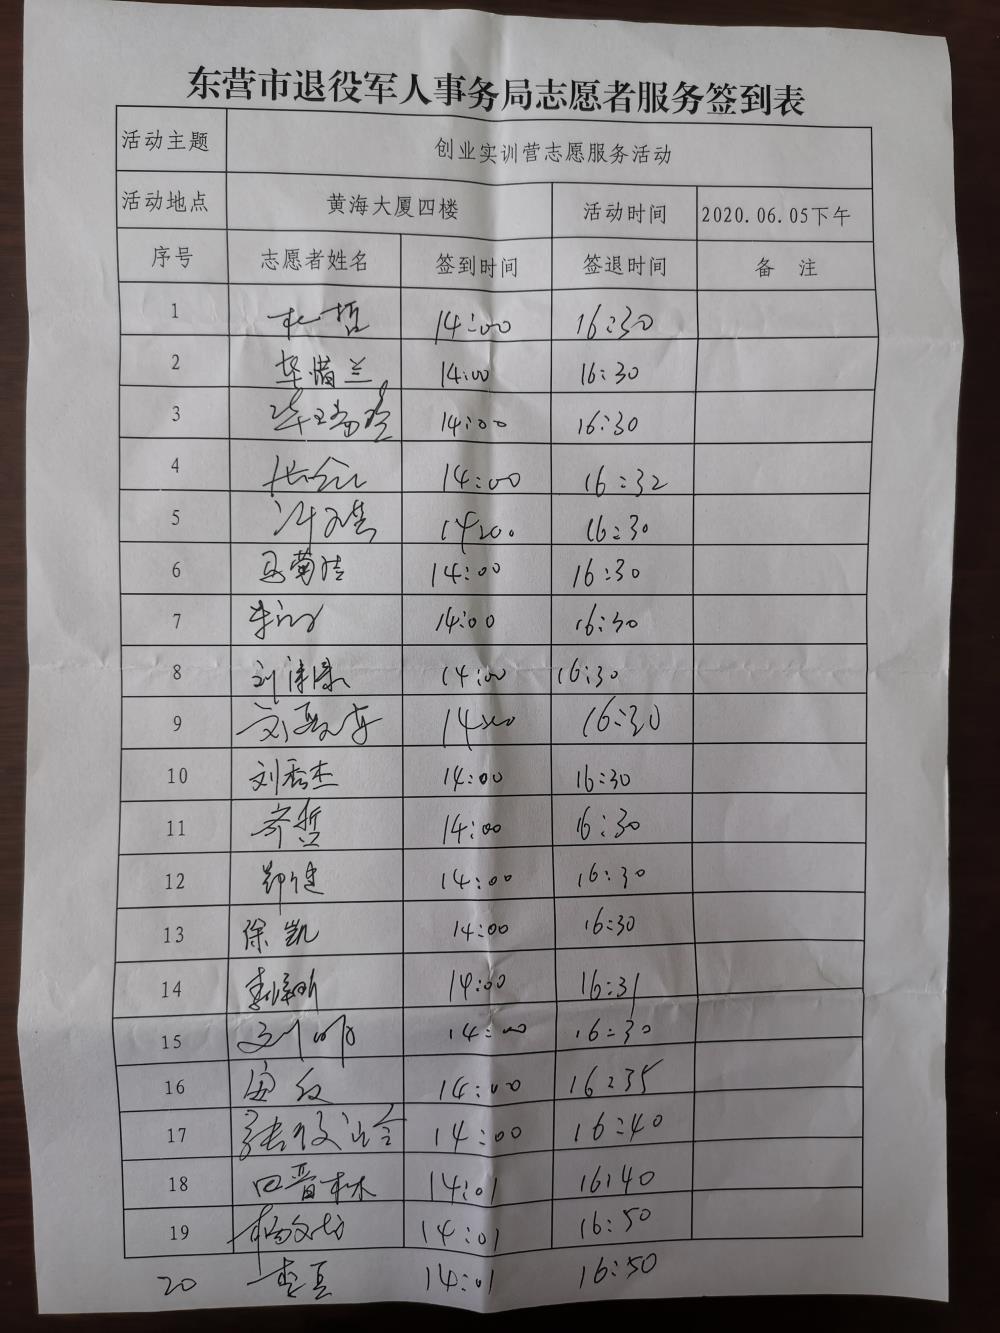 东营市退役军人事务局志愿者服务签到表
活动主题 创业实训营志愿服务活动
活动地点 黄海大厦四楼 活动时间 2020.06.05下午
序号 志愿者姓名 签到时间 签退时间 备 注
1 杜哲 14:00 16:30
2 14:00 16:30
3 14:00 16:30
4 14:00 16:32
5 14:00 16:30
6 14:00 16:30
7 14:00 16:30
8 14:00 16:30
9 14:00 16:30
10 刘秀杰 14:00 16:30
11 齐哲 14:00 16:30
12 郑健 14:00 16:30
13 徐凯 14:00 16:30
14 14:00 16:31
15 刘明 14:00 16:30
16 14:00 16:35
17 14:00 16:40
18 田晋林 14:01 16:40
19 14:01 16:50
20 14:01 16:50